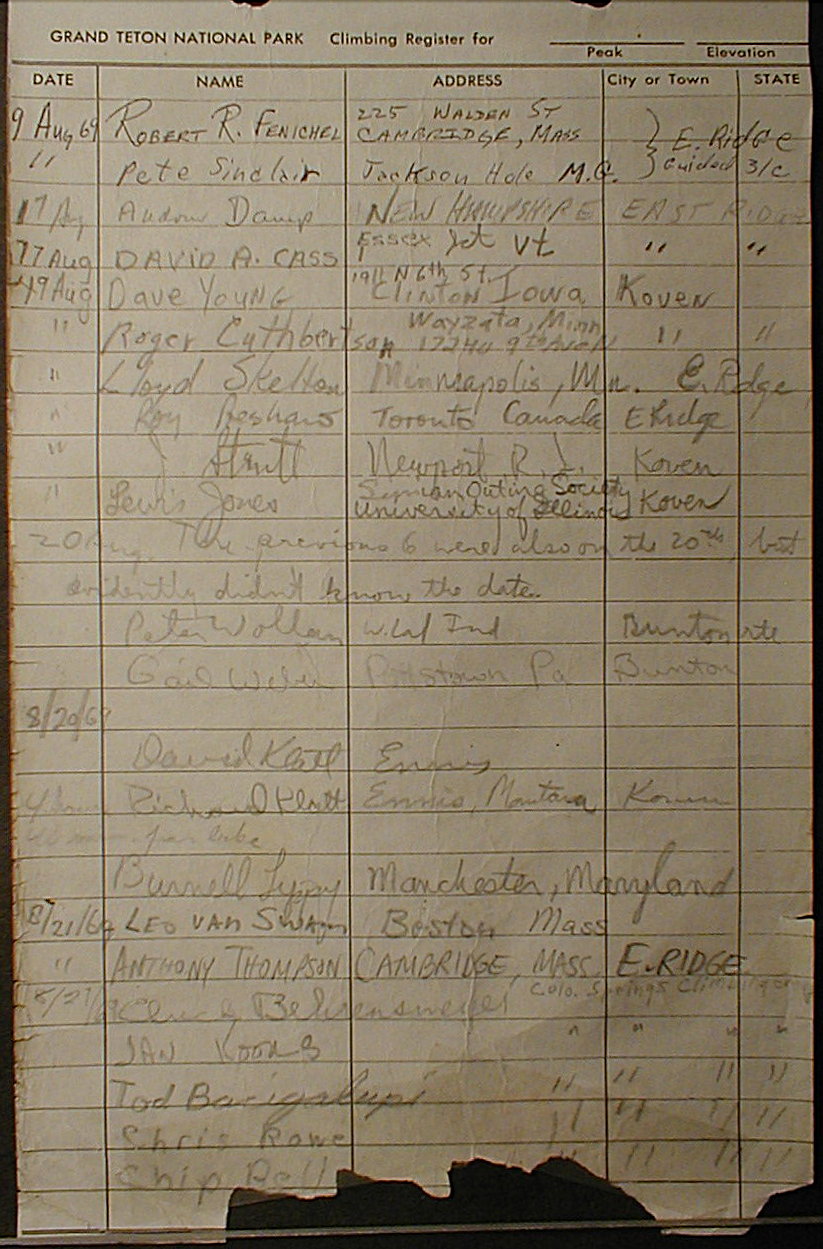 GRAND TETON NATIONAL PARK Climbing Register for
Peak Elevation
DATE NAME ADDRESS City or Town STATE
9 Aug 69 ROBERT R. FENICHEL 225 WALDEN ST
CAMBRIDGE, MASS } E. Ridge
" Pete Sinclair Jackson Hole M.G. } Guided 3/c
17 Aug Damp NEW HAMPSHIRE EAST RIDGE
17 Aug DAVID A. CASS Essex Jct Vt " "
19 Aug Dave YOUNG 1911 N 6th St.
Clinton Iowa Koven
" Roger Cuthbertson Wayzata, Minn
" "
" Lloyd Skelton Minneapolis, Mn. E. Rdge
" Roy Toronto Canada E Ridge
" J Newport R.I. Koven
" Lewis Jones Simian Outing Society
University of Illinois Koven
20 Aug. The previous 6 were also on the 20th, but
evidently didn't know the date.
Peter W. Laf Ind rte
Gail Weber Pa
8/20/69
David Klatt Ennis
Richard Klatt Ennis, Montana Koven
Burnell Manchester, Maryland
8/21/69 LEO VAN Boston Mass
" ANTHONY THOMPSON CAMBRIDGE, MASS. E. RIDGE
Colo. Springs
JAN " " " "
Tod " " " "
Chris Rowe " " " "
" " " "